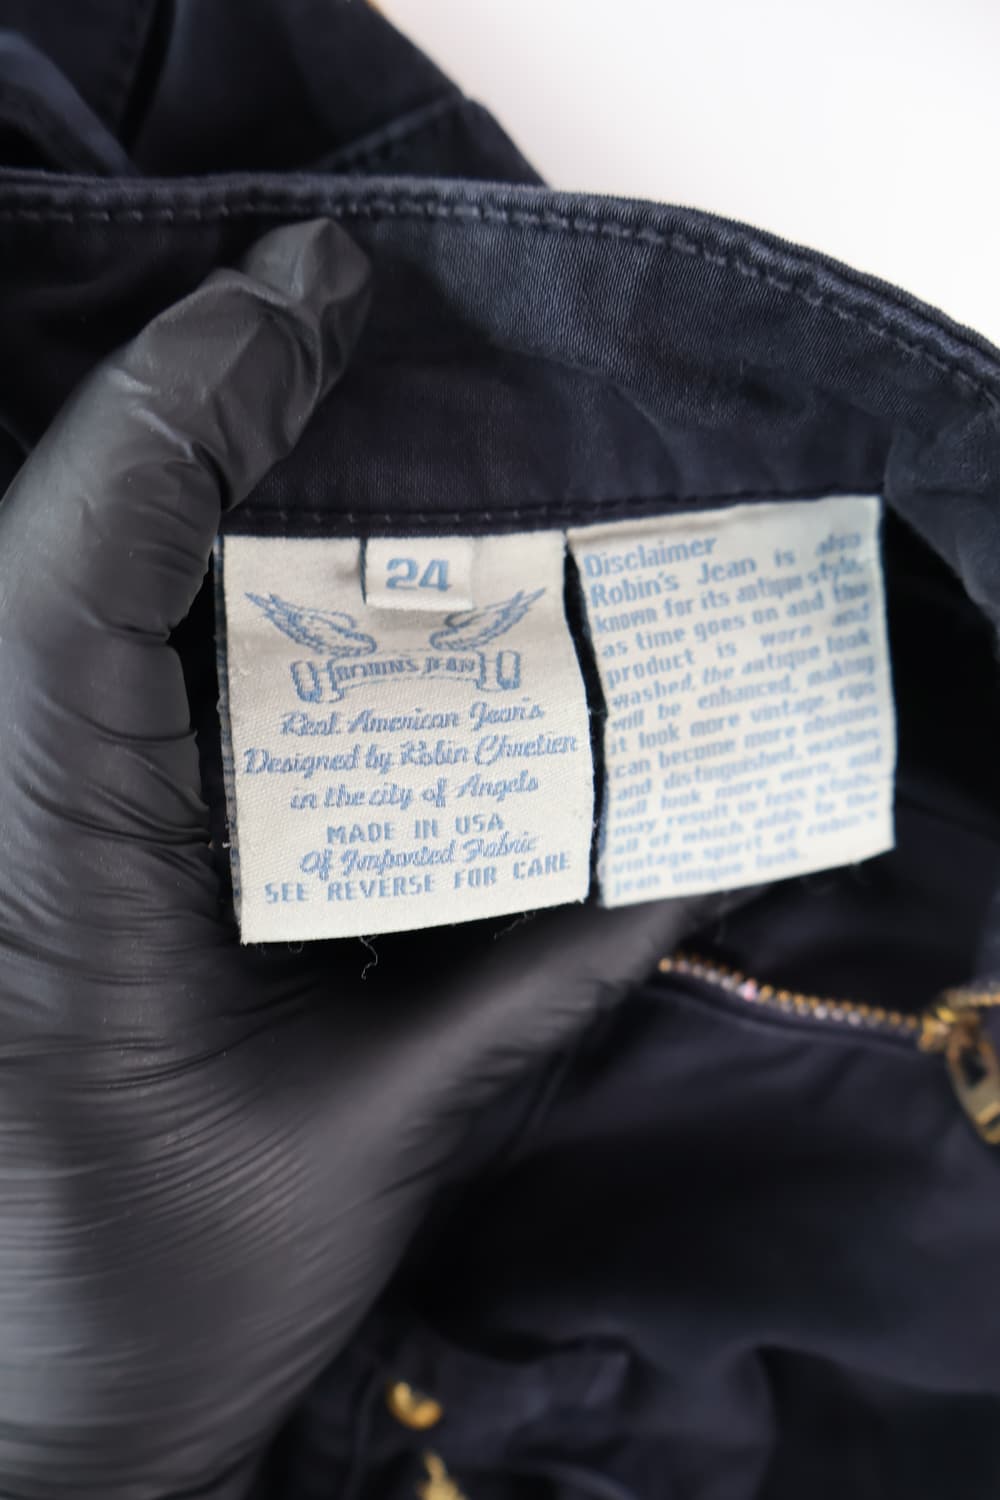 24
ROBINS JEAN
Real American Jean's
Designed by Robin Chretien
in the city of Angels
MADE IN USA
Of Imported Fabric
SEE REVERSE FOR CARE
Disclaimer
Robin's Jean is also
known for its antique style,
as time goes on and the
product is worn and
washed, the antique look
will be enhanced, making
it look more vintage, rips
can become more obvious
and distinguished, washes
will look more worn, and
may result in less studs,
all of which adds to the
vintage spirit of robin's
jean unique look.